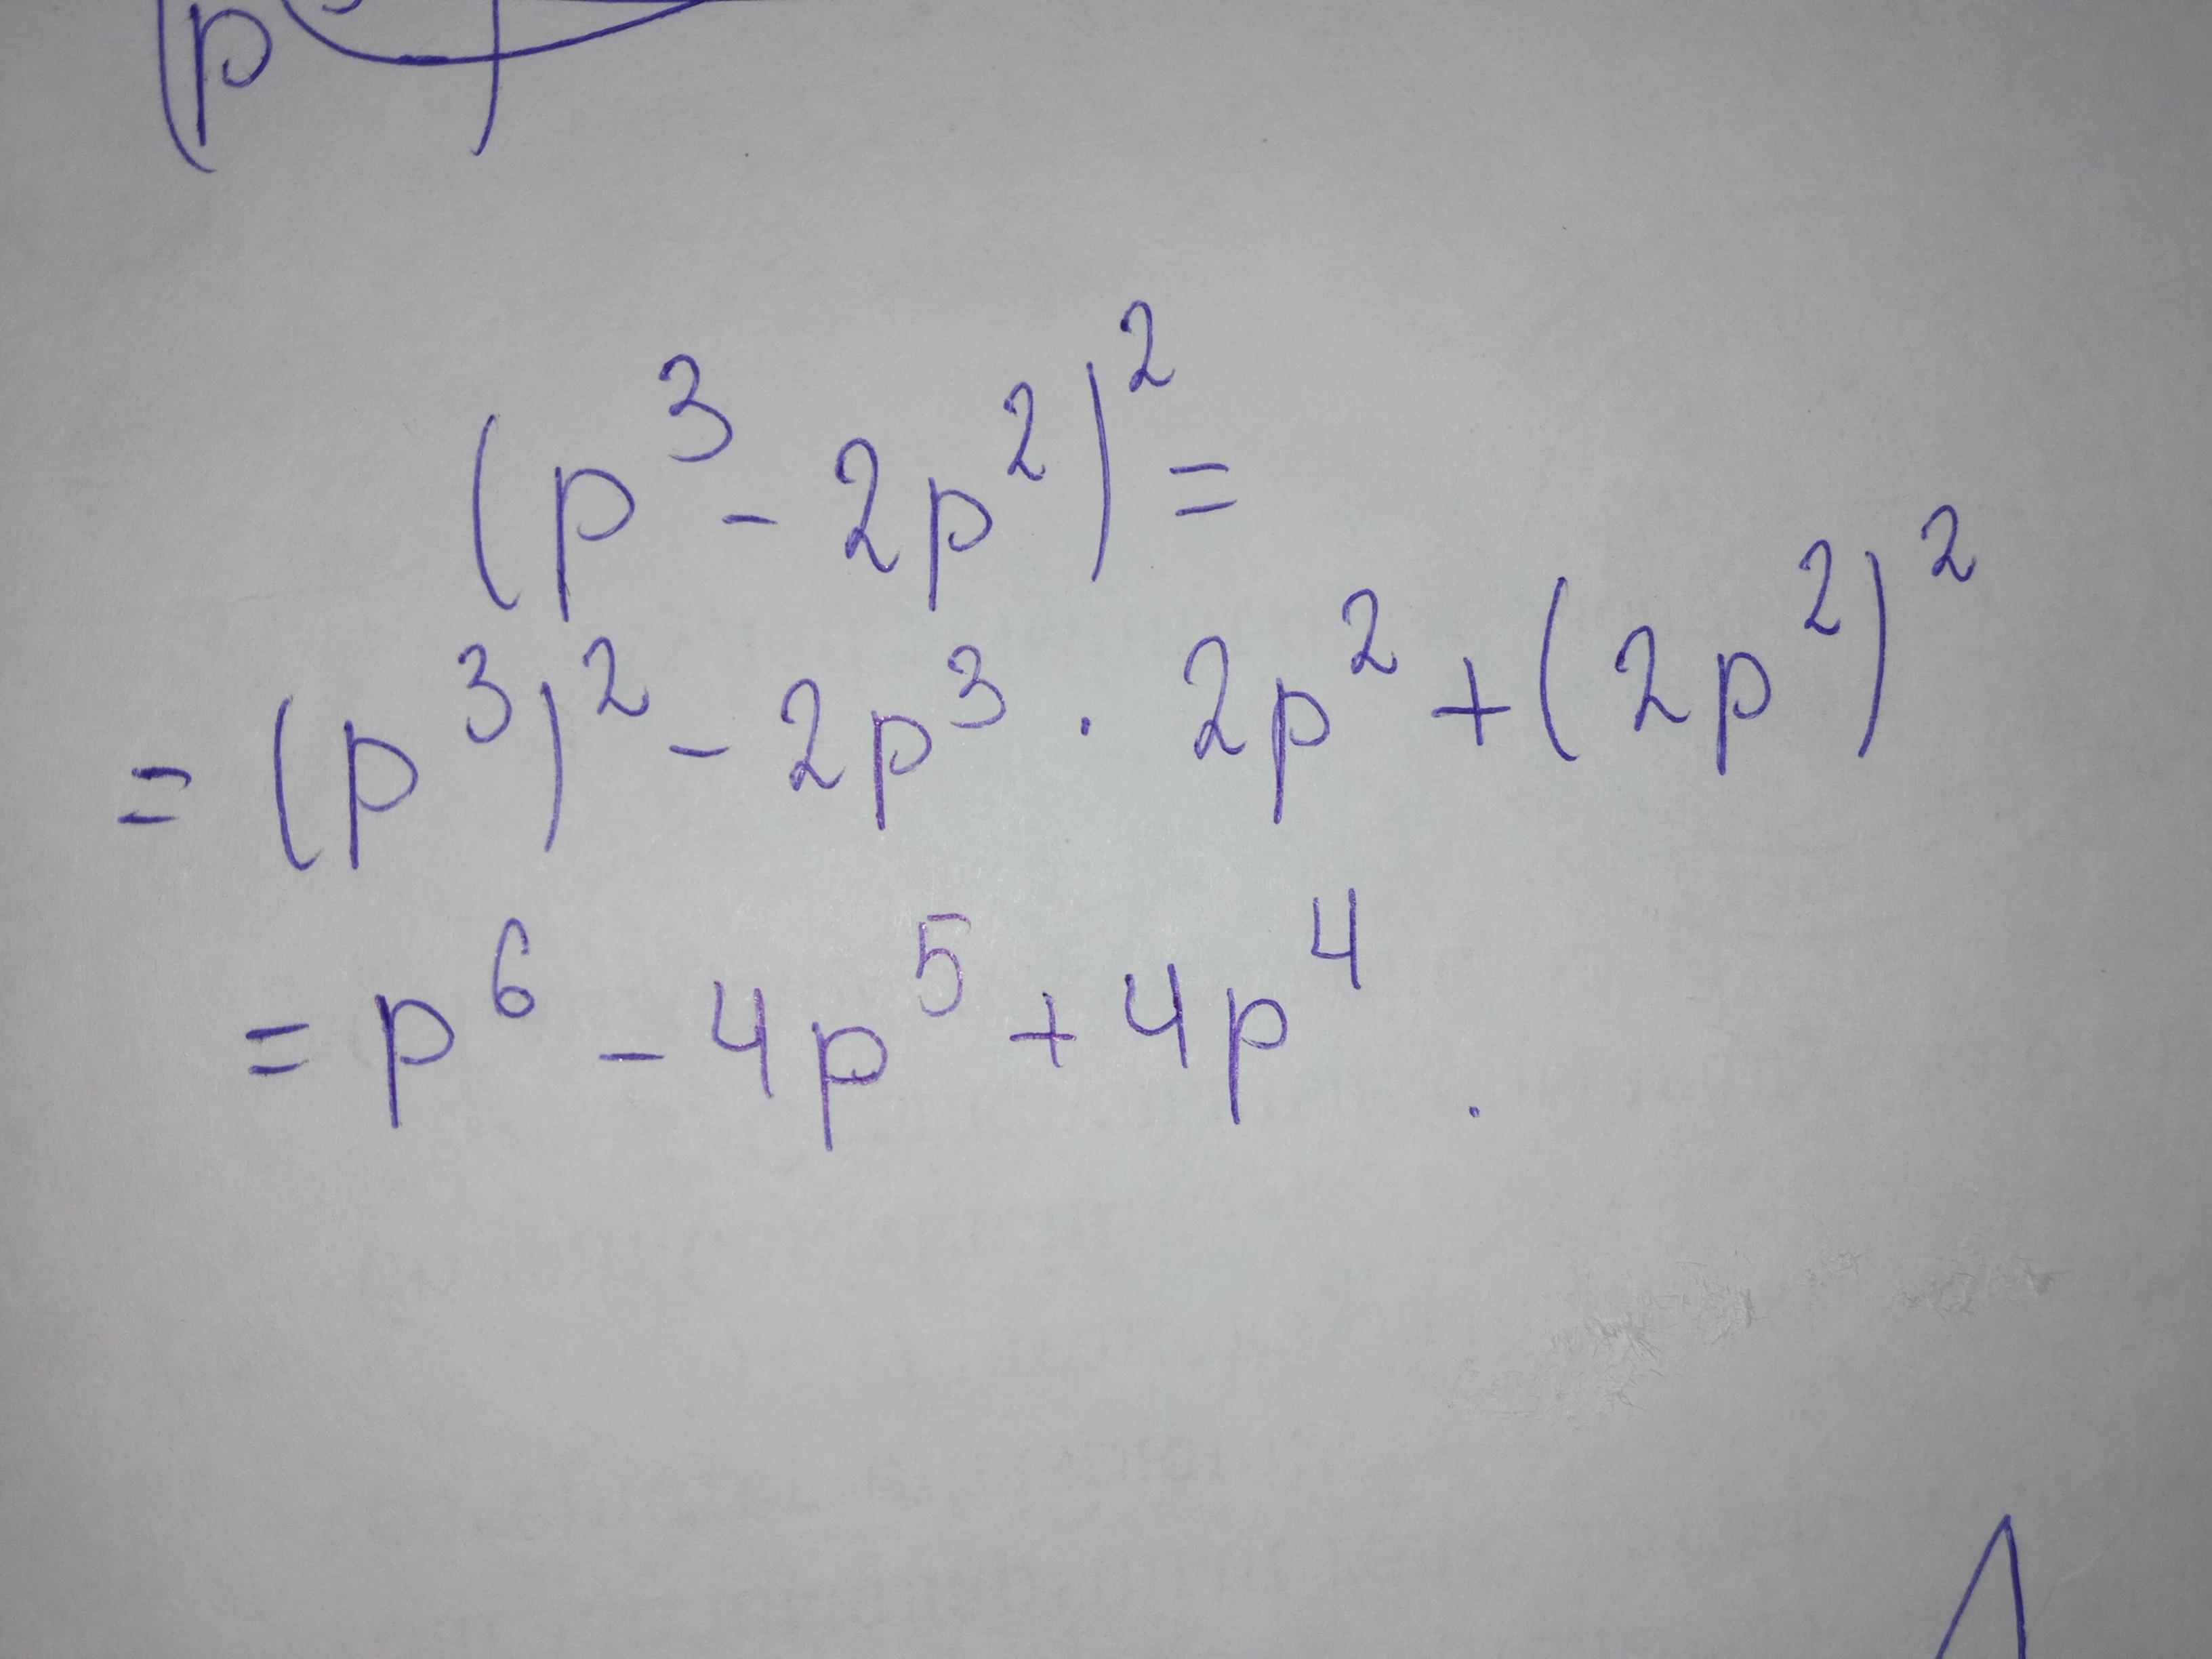 (p
)
(p³ - 2p²)² =
= (p³)² - 2p³ · 2p² + (2p²)²
= p⁶ - 4p⁵ + 4p⁴ .